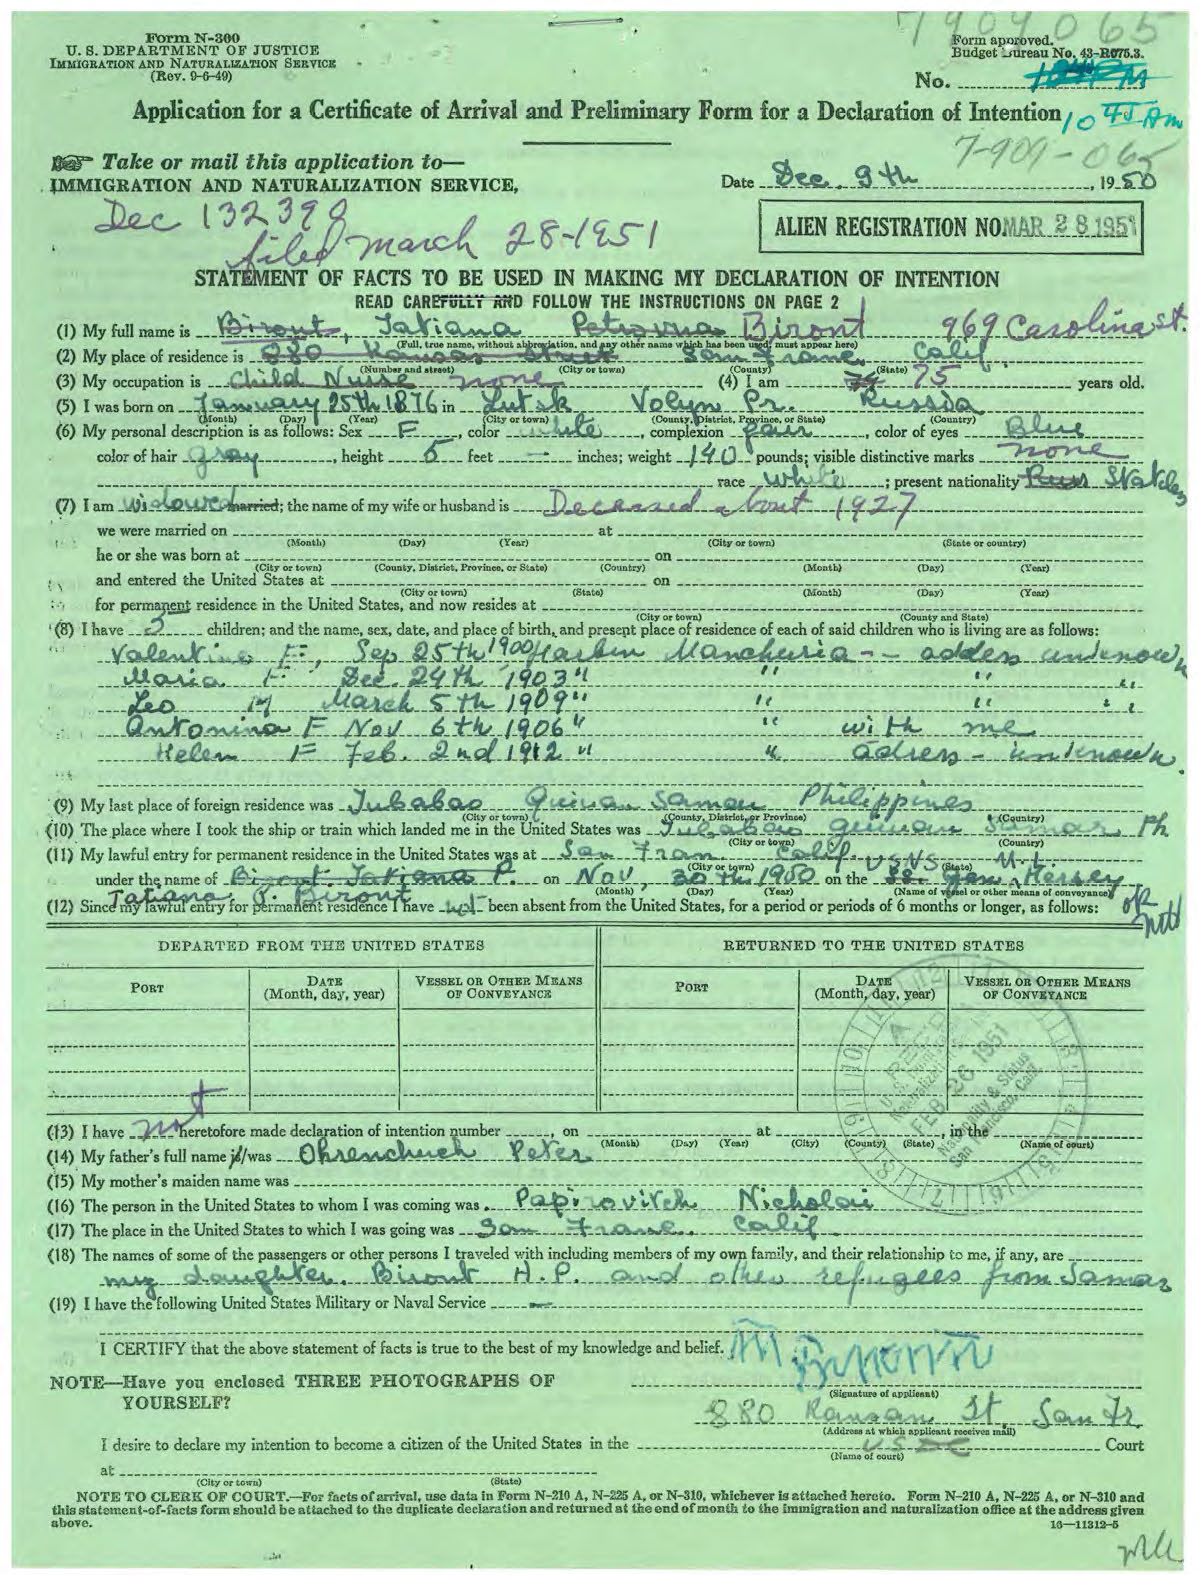 7909065
Form N-300
U. S. DEPARTMENT OF JUSTICE
IMMIGRATION AND NATURALIZATION SERVICE
(Rev. 9-6-49)
Form approved.
Budget Bureau No. 43-R075.3.
No.
Application for a Certificate of Arrival and Preliminary Form for a Declaration of Intention
10 45 AM
7-909-065
Take or mail this application to—
IMMIGRATION AND NATURALIZATION SERVICE,
Date Dec. 9th, 1950
Dec 132390
filed March 28-1951
ALIEN REGISTRATION NO. MAR 28 1951
STATEMENT OF FACTS TO BE USED IN MAKING MY DECLARATION OF INTENTION
READ CAREFULLY AND FOLLOW THE INSTRUCTIONS ON PAGE 2
(1) My full name is Biront, Tatiana Petrovna Biront 969 Carolina St.
(Full, true name, without abbreviation, and any other name which has been used, must appear here)
(2) My place of residence is 880 Kansas Street San Franc. Calif
(Number and street) (City or town) (County) (State)
(3) My occupation is Child Nurse none (4) I am 74 75 years old.
(5) I was born on January 25th 1876 in Lutsk Volyn Pr. Russia
(Month) (Day) (Year) (City or town) (County, District, Province, or State) (Country)
(6) My personal description is as follows: Sex F, color white, complexion fair, color of eyes Blue
color of hair gray, height 5 feet — inches; weight 140 pounds; visible distinctive marks none
race white; present nationality Russ Stateles
(7) I am widowed married; the name of my wife or husband is Deceased about 1927
we were married on at
(Month) (Day) (Year) (City or town) (State or country)
he or she was born at on
(City or town) (County, District, Province, or State) (Country) (Month) (Day) (Year)
and entered the United States at on
(City or town) (State) (Month) (Day) (Year)
for permanent residence in the United States, and now resides at
(City or town) (County and State)
(8) I have 5 children; and the name, sex, date, and place of birth, and present place of residence of each of said children who is living are as follows:
Valentine F, Sep 25th 1900 Harbin Manchuria -- addess unknown
Maria F Dec. 24th 1903 " " " "
Leo M March 5th 1909 " " " "
Antonina F Nov 6th 1906 " " with me
Helen F Feb. 2nd 1912 " " adress - unknown.
(9) My last place of foreign residence was Tubabao Guiuan Samar Philippines
(City or town) (County, District, or Province) (Country)
(10) The place where I took the ship or train which landed me in the United States was Tubabao Guiuan Samar Ph
(City or town) (Country)
(11) My lawful entry for permanent residence in the United States was at San Fran. Calif. USNS M.L.
(City or town) (State)
under the name of Biront Tatiana P. on Nov, 30th 1950 on the Gen. Hersey
(Month) (Day) (Year) (Name of vessel or other means of conveyance)
Tatiana P. Biront
(12) Since my lawful entry for permanent residence I have not been absent from the United States, for a period or periods of 6 months or longer, as follows: OK
DEPARTED FROM THE UNITED STATES RETURNED TO THE UNITED STATES
PORT DATE (Month, day, year) VESSEL OR OTHER MEANS OF CONVEYANCE PORT DATE (Month, day, year) VESSEL OR OTHER MEANS OF CONVEYANCE
FEB 26 1951
Nationality & Status
San Francisco, Calif.
(13) I have not heretofore made declaration of intention number , on at , in the
(Month) (Day) (Year) (City) (County) (State) (Name of court)
(14) My father's full name is/was Ohrenchuch Peter
(15) My mother's maiden name was
(16) The person in the United States to whom I was coming was Papirovitch Nicholai
(17) The place in the United States to which I was going was San Franc. Calif
(18) The names of some of the passengers or other persons I traveled with including members of my own family, and their relationship to me, if any, are
my daughter. Biront H.P. and other refugees from Samar
(19) I have the following United States Military or Naval Service —
I CERTIFY that the above statement of facts is true to the best of my knowledge and belief.
(Signature of applicant)
NOTE—Have you enclosed THREE PHOTOGRAPHS OF
YOURSELF?
880 Kansas St. San Fr
(Address at which applicant receives mail)
I desire to declare my intention to become a citizen of the United States in the US DC Court
(Name of court)
at
(City or town) (State)
NOTE TO CLERK OF COURT.—For facts of arrival, use data in Form N-210 A, N-225 A, or N-310, whichever is attached hereto. Form N-210 A, N-225 A, or N-310 and
this statement-of-facts form should be attached to the duplicate declaration and returned at the end of month to the immigration and naturalization office at the address given
above.
16—11312-5